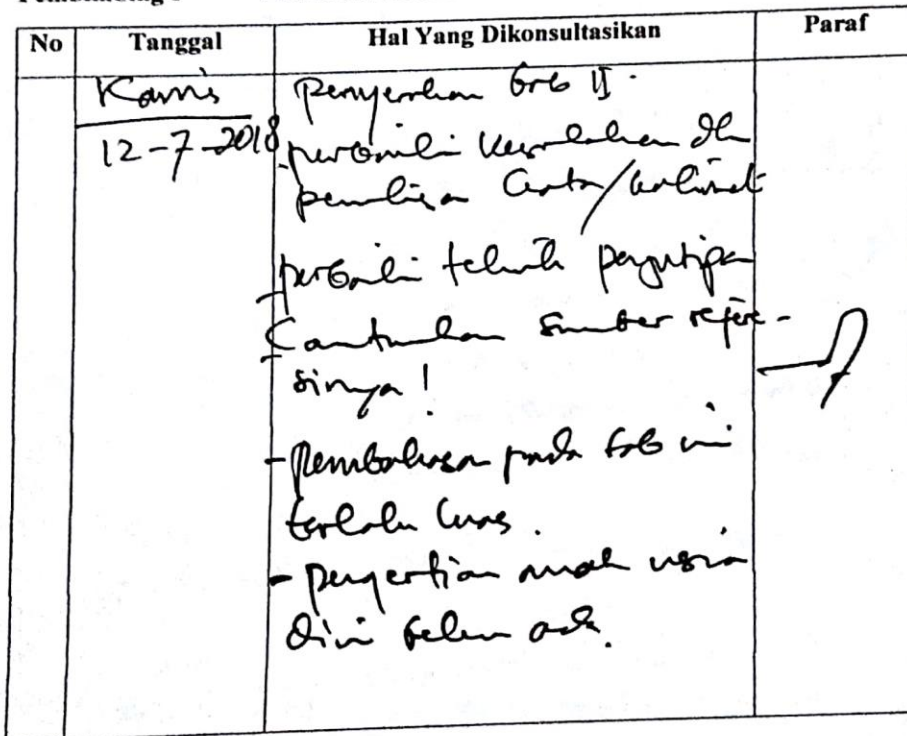 No Tanggal Hal Yang Dikonsultasikan Paraf
Kamis penyerahan bab II.
12-7-2018 perbaiki kesalahan dlm
penulisan kata/kalimat
- perbaiki teknik pengutipan
- Cantumkan sumber refere-
sinya!
- Pembahasan pada bab ini
terlalu luas.
- pengertian anak usia
dini belum ada.